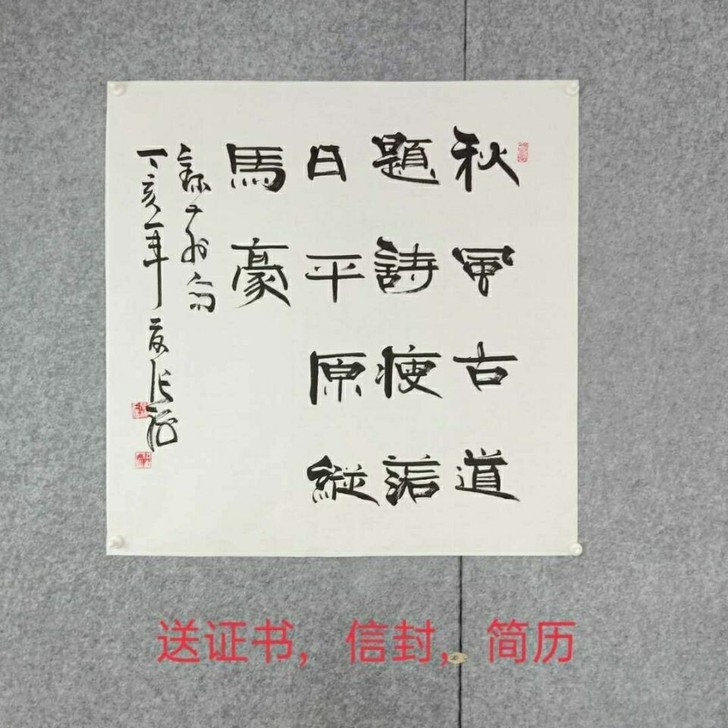 秋風古道
題詩瘦落
日平原縱
馬豪
丁亥年夏
送证书，信封，简历